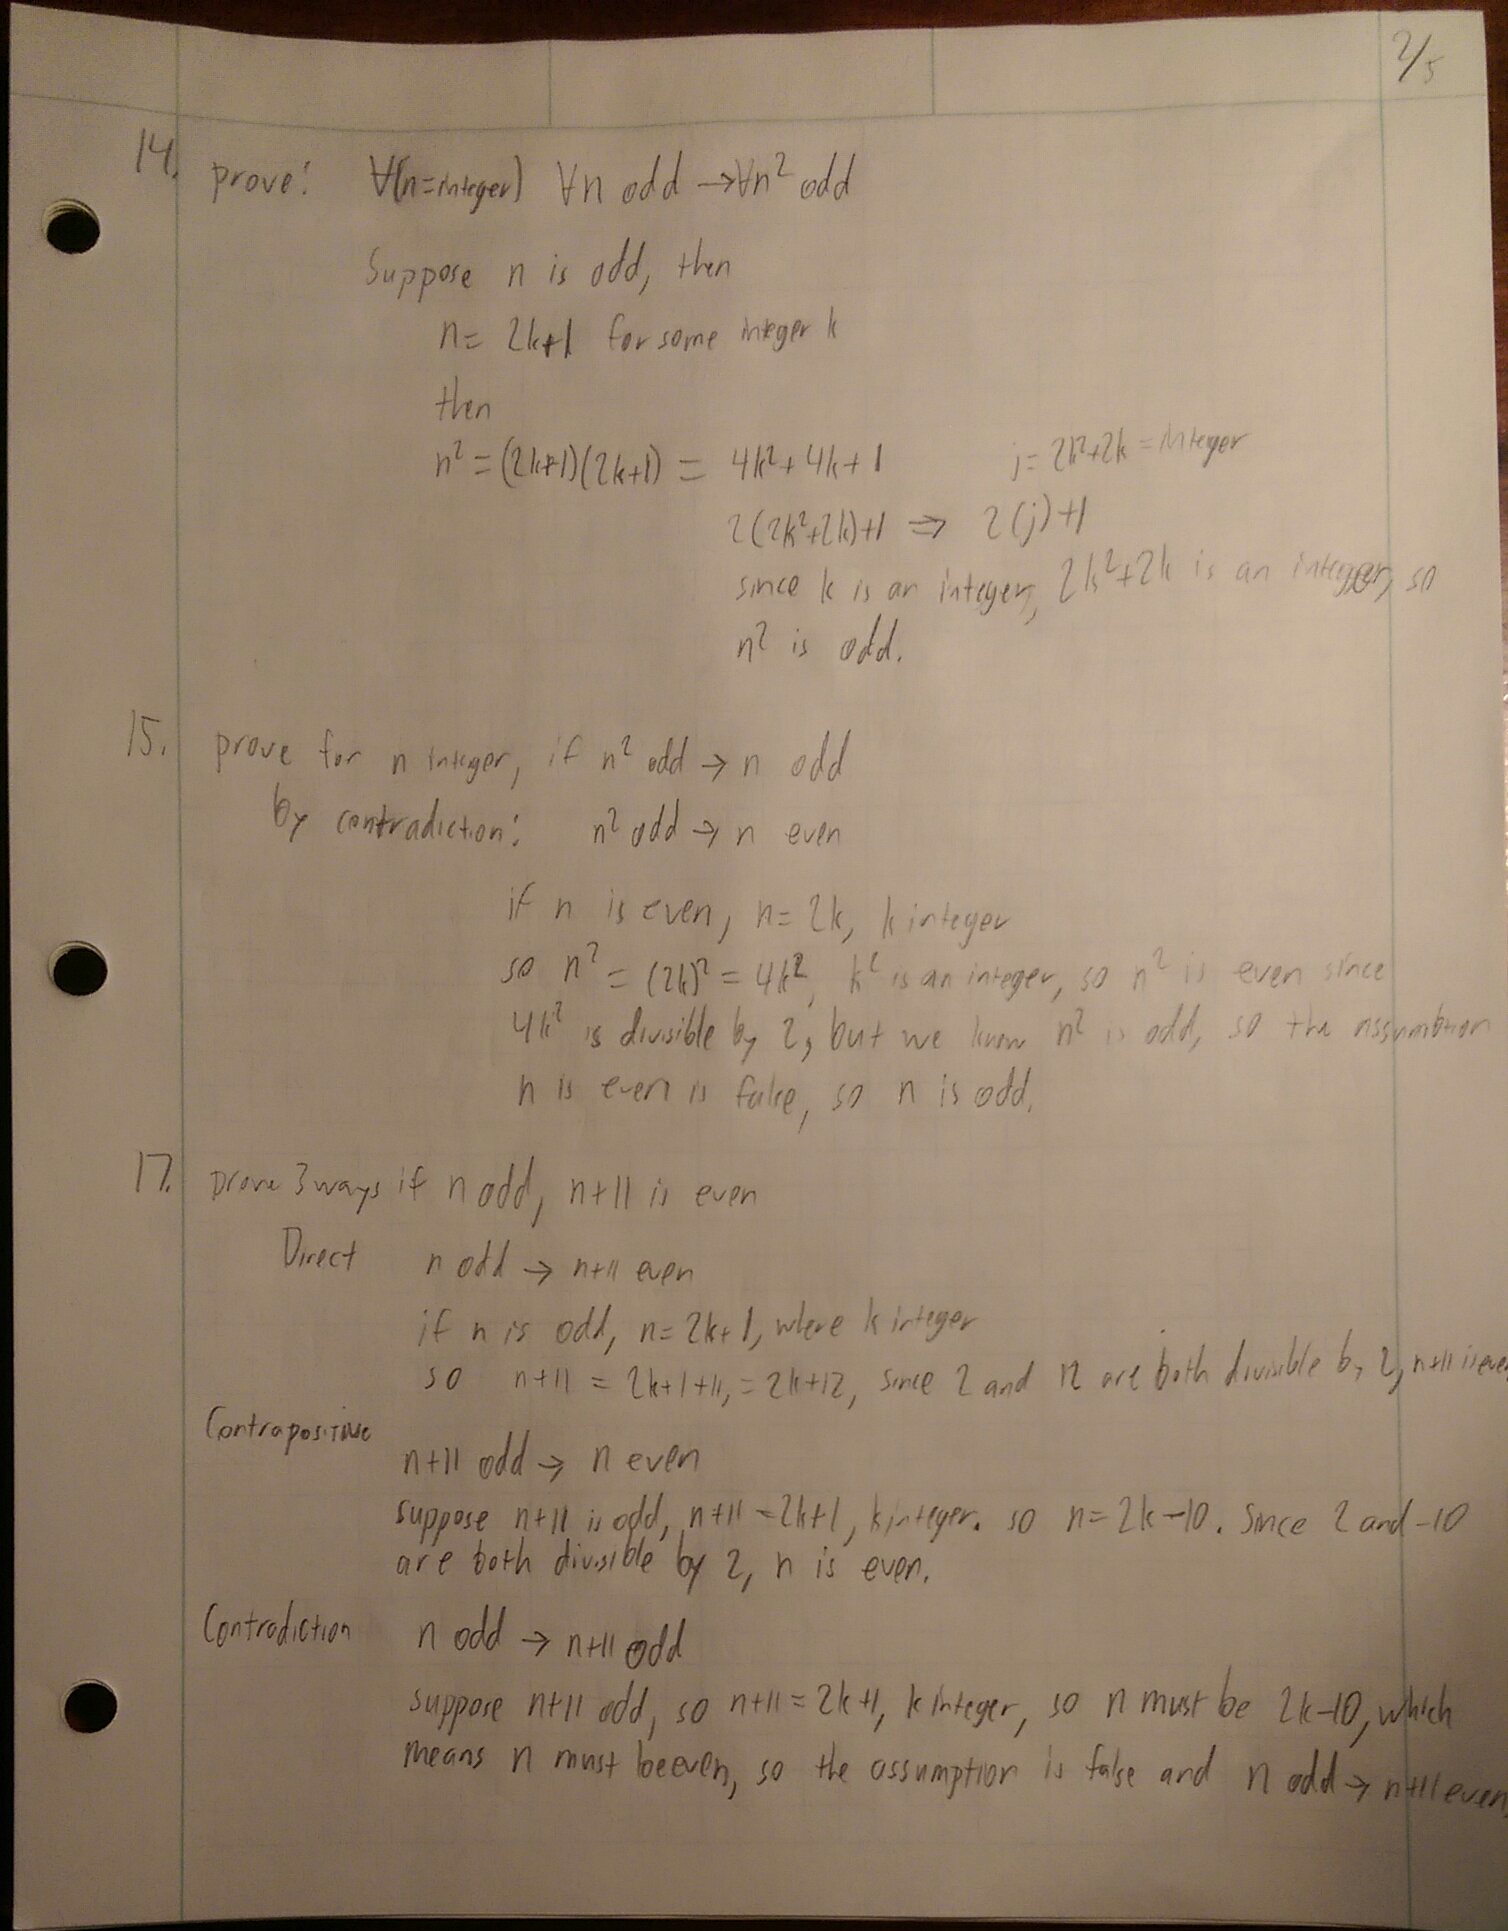 2/5
14. prove: ∀(n=integer) ∀n odd → ∀n² odd
Suppose n is odd, then
n = 2k+1 for some integer k
then
n² = (2k+1)(2k+1) = 4k²+4k+1 j = 2k²+2k = integer
2(2k²+2k)+1 ⇒ 2(j)+1
since k is an integer, 2k²+2k is an integer, so
n² is odd.
15. prove for n integer, if n² odd → n odd
by contradiction: n² odd → n even
if n is even, n = 2k, k integer
so n² = (2k)² = 4k², k² is an integer, so n² is even since
4k² is divisible by 2, but we know n² is odd, so the assumption
n is even is false, so n is odd.
17. prove 3 ways if n odd, n+11 is even
Direct n odd → n+11 even
if n is odd, n = 2k+1, where k integer
so n+11 = 2k+1+11, = 2k+12, since 2 and 12 are both divisible by 2, n+11 is even
Contrapositive
n+11 odd → n even
suppose n+11 is odd, n+11 = 2k+1, k integer. so n = 2k-10. Since 2 and -10
are both divisible by 2, n is even.
Contradiction n odd → n+11 odd
suppose n+11 odd, so n+11 = 2k+1, k integer, so n must be 2k-10, which
means n must be even, so the assumption is false and n odd → n+11 even.